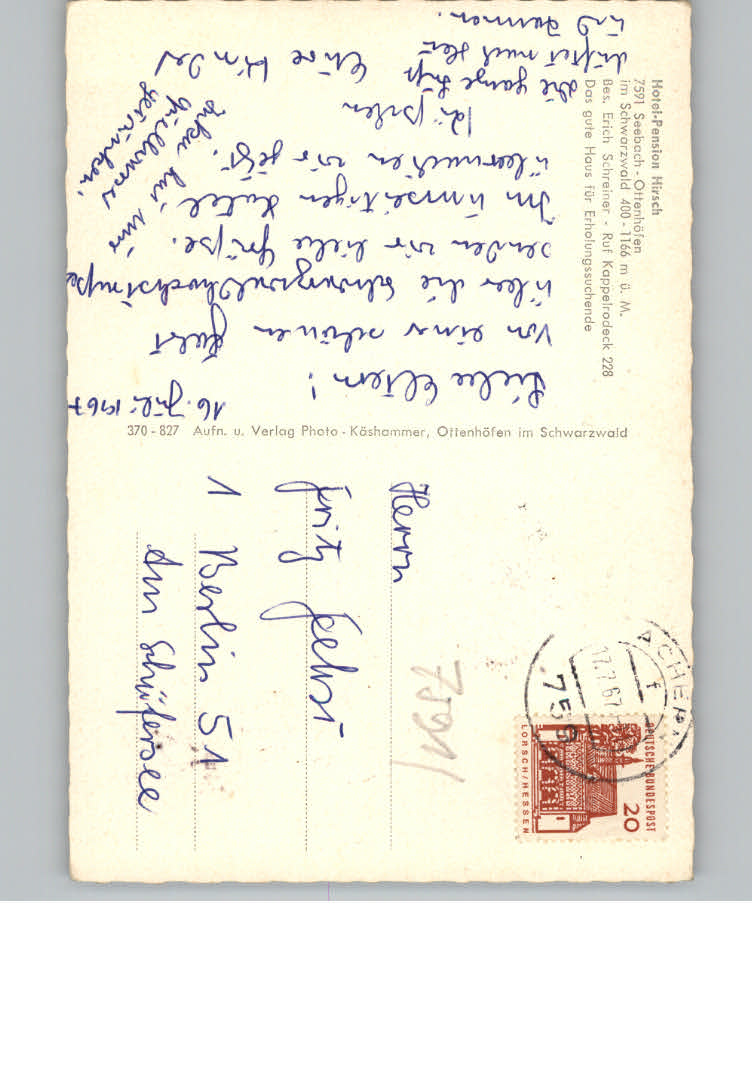 Hotel-Pension Hirsch
7591 Seebach - Ottenhöfen
im Schwarzwald 400 - 1166 m ü. M.
Bes. Erich Schreiner - Ruf Kappelrodeck 228
Das gute Haus für Erholungssuchende
16. Juli 1967
Liebe Eltern!
Von einer schönen Fahrt
über die Schwarzwaldhochstraße
senden wir liebe Grüße.
Im umseitigen Hotel
übernachten wir jetzt.
die ganze Luft
duftet nach Heu
und Sommer.
Eure Kinder
370 - 827 Aufn. u. Verlag Photo - Käshammer, Ottenhöfen im Schwarzwald
Herrn
Fritz
1 Berlin 51
Am Schäfersee
7591/
ACHERN
17.7.67
f
759
DEUTSCHE BUNDESPOST
20
LORSCH/HESSEN